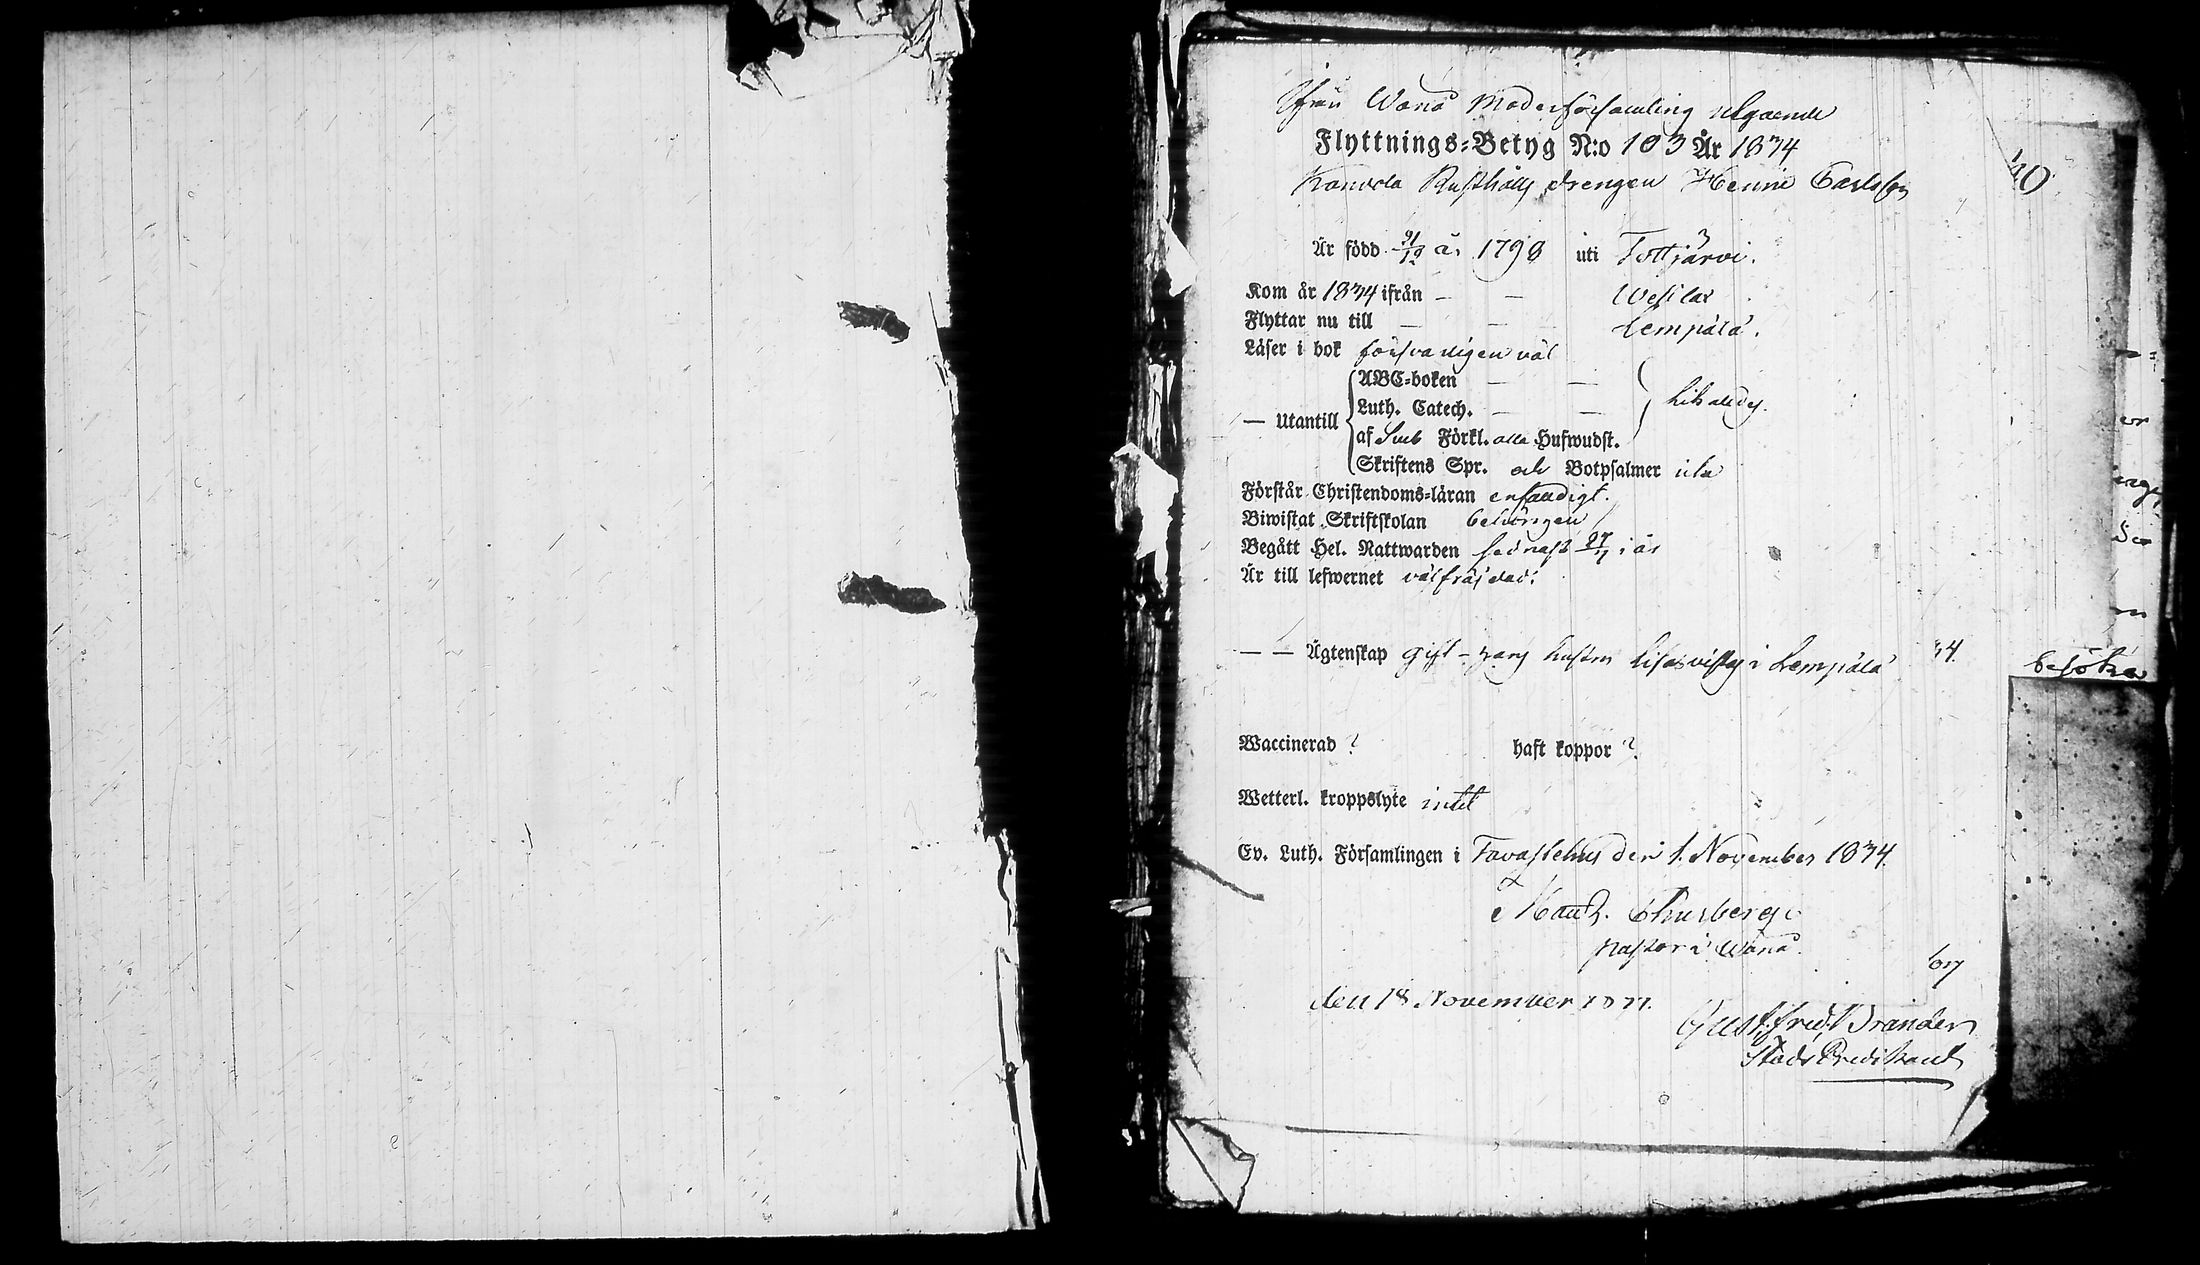 Ifrån Wånå Moderförsamling utgående
Flyttnings-Betyg N:o 103 År 1834
Rusthålls drengen Henric Carlsson
40
Är född 21/12 år 1798 uti Tottjärvi.
Kom år 1834 ifrån — — Wesilax
Flyttar nu till — — Lempälä.
Läser i bok försvarligen väl
ABC-boken — —
Luth. Catech. — — likaledes.
— Utantill
af Sveb Förkl. alla Hufwudst.
Skriftens Spr. och Botpsalmer icke
Förstår Christendoms-läran enfaldigt.
Biwistat Skriftskolan behörigen
Begått Hel. Nattwarden sednast 27/7 i år
Är till lefwernet välfräjdad.
— — Ägtenskap gift - hans hustru vistas i Lempälä
34.
besöka
Waccinerad ? haft koppor ?
Wetterl. kroppslyte intet
Ev. Luth. Församlingen i Tavastehus den 1. November 1834.
Pastor i Wånå.
den 18 November
Gust. Fred. Brander
StadsPredikant